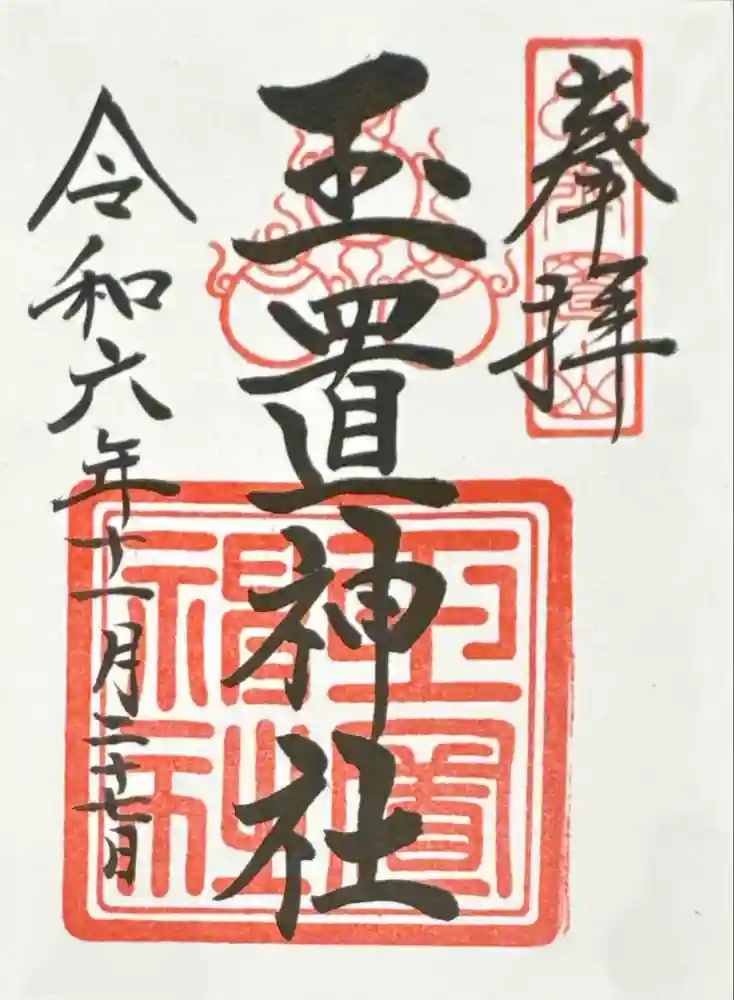 奉拝
玉置神社
令和六年十一月二十七日